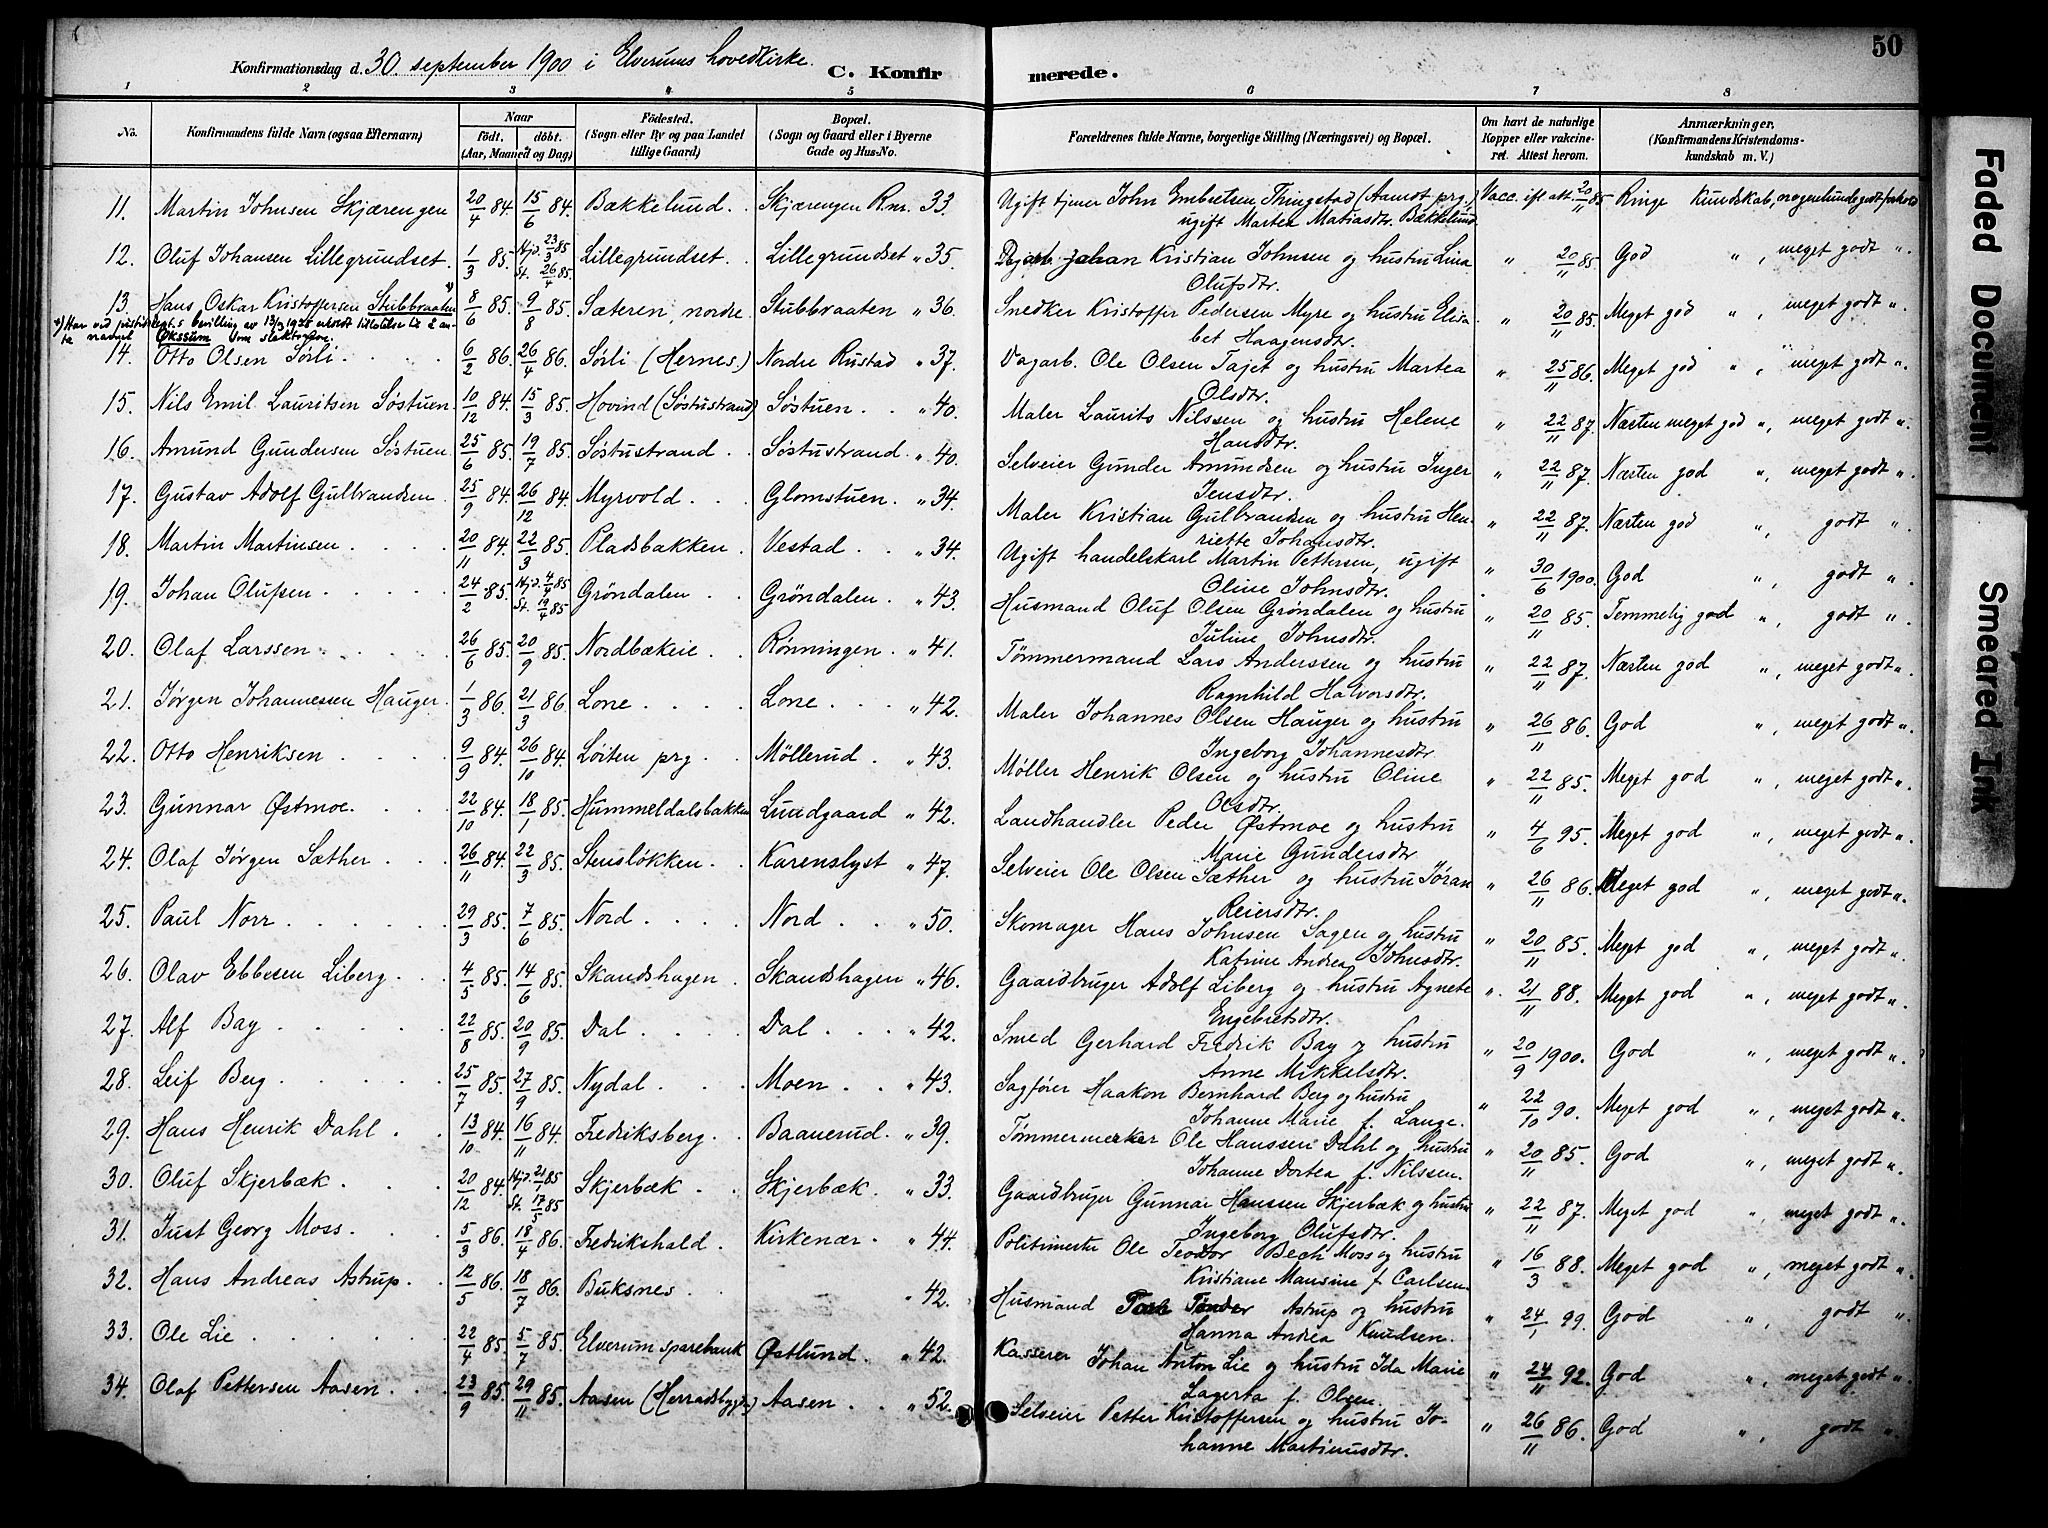 50
Konfirmationsdag d. 30. september 1900 i Elverums hovedkirke. C. Konfirmerede.
1 2 3 4 5 6 7 8
No. Konfirmandens fulde Navn (ogsaa Efternavn) Naar født. døbt. (Aar, Maaned og Dag) Fødested. (Sogn eller By og paa Landet tillige Gaard) Bopæl. (Sogn og Gaard eller i Byerne Gade og Hus-No. Forældrenes fulde Navne, borgerlige Stilling (Næringsvei) og Bopæl. Om havt de naturlige Kopper eller vakcineret. Attest herom. Anmærkninger. (Konfirmandens Kristendomskundskab m. V.)
11. Martin Johnsen Skjærengen 20/4 84. 15/6 84. Bækkelund. Skjærengen Rnr. 33. Ugift tjener John Embretsen Thingstad (Aamot prg.) Vacc. ift. att. 20/11 85 Ringe Kundskab, nogenlunde godt forhold
ugift Martea Matiasdtr. Bækkelund.
12. Oluf Johansen Lillegrundset. 1/3 85. Hjd. 23/3 85 St. 26/4 85 Lillegrundset. Lillegrundset " 35. Dagarb. Johan Kristian Johnsen og hustru Lina " 20/11 85. God " , meget godt ".
Olufsdtr.
13. Hans Oskar Kristoffersen Stubbraaten *) 8/6 85. 9/8 85. Sæteren, nordre. Stubbraaten " 36. Snedker Kristoffer Pedersen Myre og hustru Elisa- " 20/11 85. Meget god " , meget godt ".
*) Har ved justisdept.s bevilling av 13/3 1925 erholdt tillatelse til å anta navnet Økssum som slektsnavn.
bet Haagensdtr.
14. Otto Olsen Sørli. 6/2 86. 26/4 86. Sørli (Hernes.) Nordre Rustad " 37. Dagarb. Ole Olsen Tajet og hustru Martea " 25/11 86. Meget god " , meget godt ".
Olsdtr.
15. Nils Emil Lauritsen Søstuen. 10/12 84. 15/3 85. Hovind (Søstustrand) Søstuen. " 40. Maler Laurits Nilssen og hustru Helene " 22/11 87. Næsten meget god ", meget godt ".
Hansdtr.
16. Amund Gundersen Søstuen. 25/6 85. 19/7 85. Søstustrand. Søstustrand. " 40. Selveier Gunder Amundsen og hustru Inger " 22/11 87. Næsten god ", meget godt ".
Jensdtr.
17. Gustav Adolf Gulbrandsen. 25/9 84. 26/12 84. Myrvold. Glomstuen. " 34. Maler Kristian Gulbrandsen og hustru Hen- " 22/11 87. Næsten god ", godt ".
riette Johansdtr.
18. Martin Martinsen. 20/11 84. 22/3 85. Pladsbakken. Vestad. " 34. Ugift handelskarl Martin Pettersen, ugift " 30/6 1900. God ", godt ".
Oline Johnsdtr.
19. Johan Olufsen. 24/2 85. Hjd. 4/4 85 St. 19/4 85 Grøndalen. Grøndalen. " 43. Husmand Oluf Olsen Grøndalen og hustru " 20/11 85. Temmelig god ", godt ".
Juline Johnsdtr.
20. Olaf Larssen. 26/6 85. 20/9 85. Nordbækeie. Rønningen. " 41. Tømmermand Lars Anderssen og hustru " 22/11 87. Næsten god ", meget godt ".
Ragnhild Halvorsdtr.
21. Jørgen Johannessen Hauger. 1/3 86. 21/3 86. Lone. Lone. " 42. Maler Johannes Olsen Hauger og hustru " 26/11 86. God ", meget godt ".
Ingeborg Johannesdtr
22. Otto Henriksen 9/9 84. 26/10 84. Løiten prg. Møllerud. " 43. Møller Henrik Olsen og hustru Oline " 22/11 85. Meget god ", meget godt ".
Olsdtr.
23. Gunnar Østmoe. 22/10 84. 18/1 85. Hummeldalsbakken Lundgaard " 42. Landhandler Peder Østmoe og hustru " 4/6 95. Meget god ", meget godt ".
Marie Gundersdtr
24. Olaf Jørgen Sæther. 26/11 84. 22/3 85. Stensløkken. Karenslyst " 47. Selveier Ole Olsen Sæther og hustru Jøran " 26/11 86. Meget god ", meget godt ".
Reiersdtr.
25. Paul Norr 29/3 85. 7/6 85. Nord. Nord. " 50. Skomager Hans Johnsen Sagen og hustru " 20/11 85. Meget god ", meget godt ".
Katrine Andrea Johnsdtr.
26. Olav Ebbesen Liberg. 4/5 85. 14/6 85. Skandshagen. Skandshagen " 46. Gaardbruger Adolf Liberg og hustru Agnete " 21/11 88. Meget god ", meget godt ".
Engebretsdtr.
27. Alf Bay. 22/8 85. 20/9 85. Dal. Dal. " 42. Smed Gerhard Fredrik Bay og hustru " 20/9 1900. God ", meget godt ".
Anne Mikkelsdtr.
28. Leif Berg. 25/7 85. 27/9 85. Nydal. Moen. " 43. Sagfører Haakon Bernhard Berg og hustru " 22/10 90. Meget god ", meget godt ".
Johanne Marie f. Lange.
29. Hans Henrik Dahl. 13/10 84. 16/11 84. Fredriksberg. Baanerud. " 39. Tømmermerker Ole Hanssen Dahl og hustru " 20/11 85. God ", meget godt ".
Johanne Dortea f. Nilssen.
30. Oluf Skjerbæk. 20/12 84. Hjd. 21/1 85 St. 17/5 85 Skjerbæk. Skjerbæk. " 33. Gaardbruger Gunnar Hanssen Skjerbæk og hustru " 22/11 87. Meget god ", meget godt ".
Ingeborg Olufsdtr.
31. Just Georg Moss. 5/3 86. 18/4 86. Fredrikshald. Kirkenær. " 44. Politimester Ole Teodor Bech Moss og hustru " 16/3 88. Meget god ", meget godt ".
Kristiane Mansine f. Carlsen.
32. Hans Andreas Astrup. 12/5 86. 18/7 86. Buksnes. " 42. Husmand Tønder Astrup og hustru " 24/1 99. God ", godt ".
Hanna Andrea Knudsen.
33. Ole Lie. 22/4 85. 5/7 85. Elverum sparebank Østlund. " 42. Kasserer Johan Anton Lie og hustru Ida Marie " 24/11 92. God ", meget godt ".
Lagerta f. Olsen.
34. Olaf Pettersen Aasen. 23/9 85. 29/11 85. Aasen (Herradsbygd.) Aasen. " 52. Selveier Petter Kristoffersen og hustru Jo- " 26/11 86. God ", godt ".
hanne Martinusdtr.
Faded Document
Smeared Ink